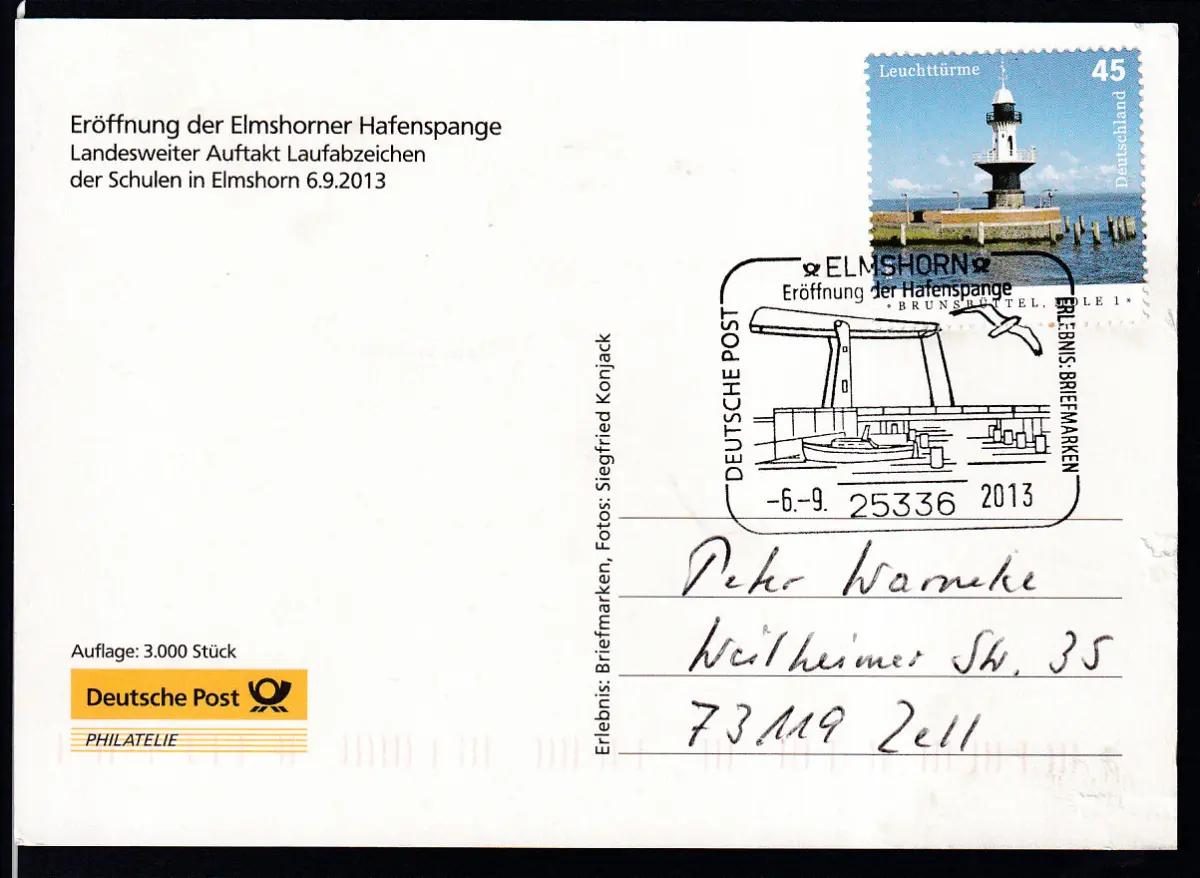 Eröffnung der Elmshorner Hafenspange
Landesweiter Auftakt Laufabzeichen
der Schulen in Elmshorn 6.9.2013
Leuchttürme
45
Deutschland
*BRUNSBÜTTEL, MOLE 1*
ELMSHORN
Eröffnung der Hafenspange
DEUTSCHE POST
ERLEBNIS: BRIEFMARKEN
-6.-9. 25336 2013
Erlebnis: Briefmarken, Fotos: Siegfried Konjack
Peter Warneke
Weilheimer Str. 35
73119 Zell
Auflage: 3.000 Stück
Deutsche Post
PHILATELIE